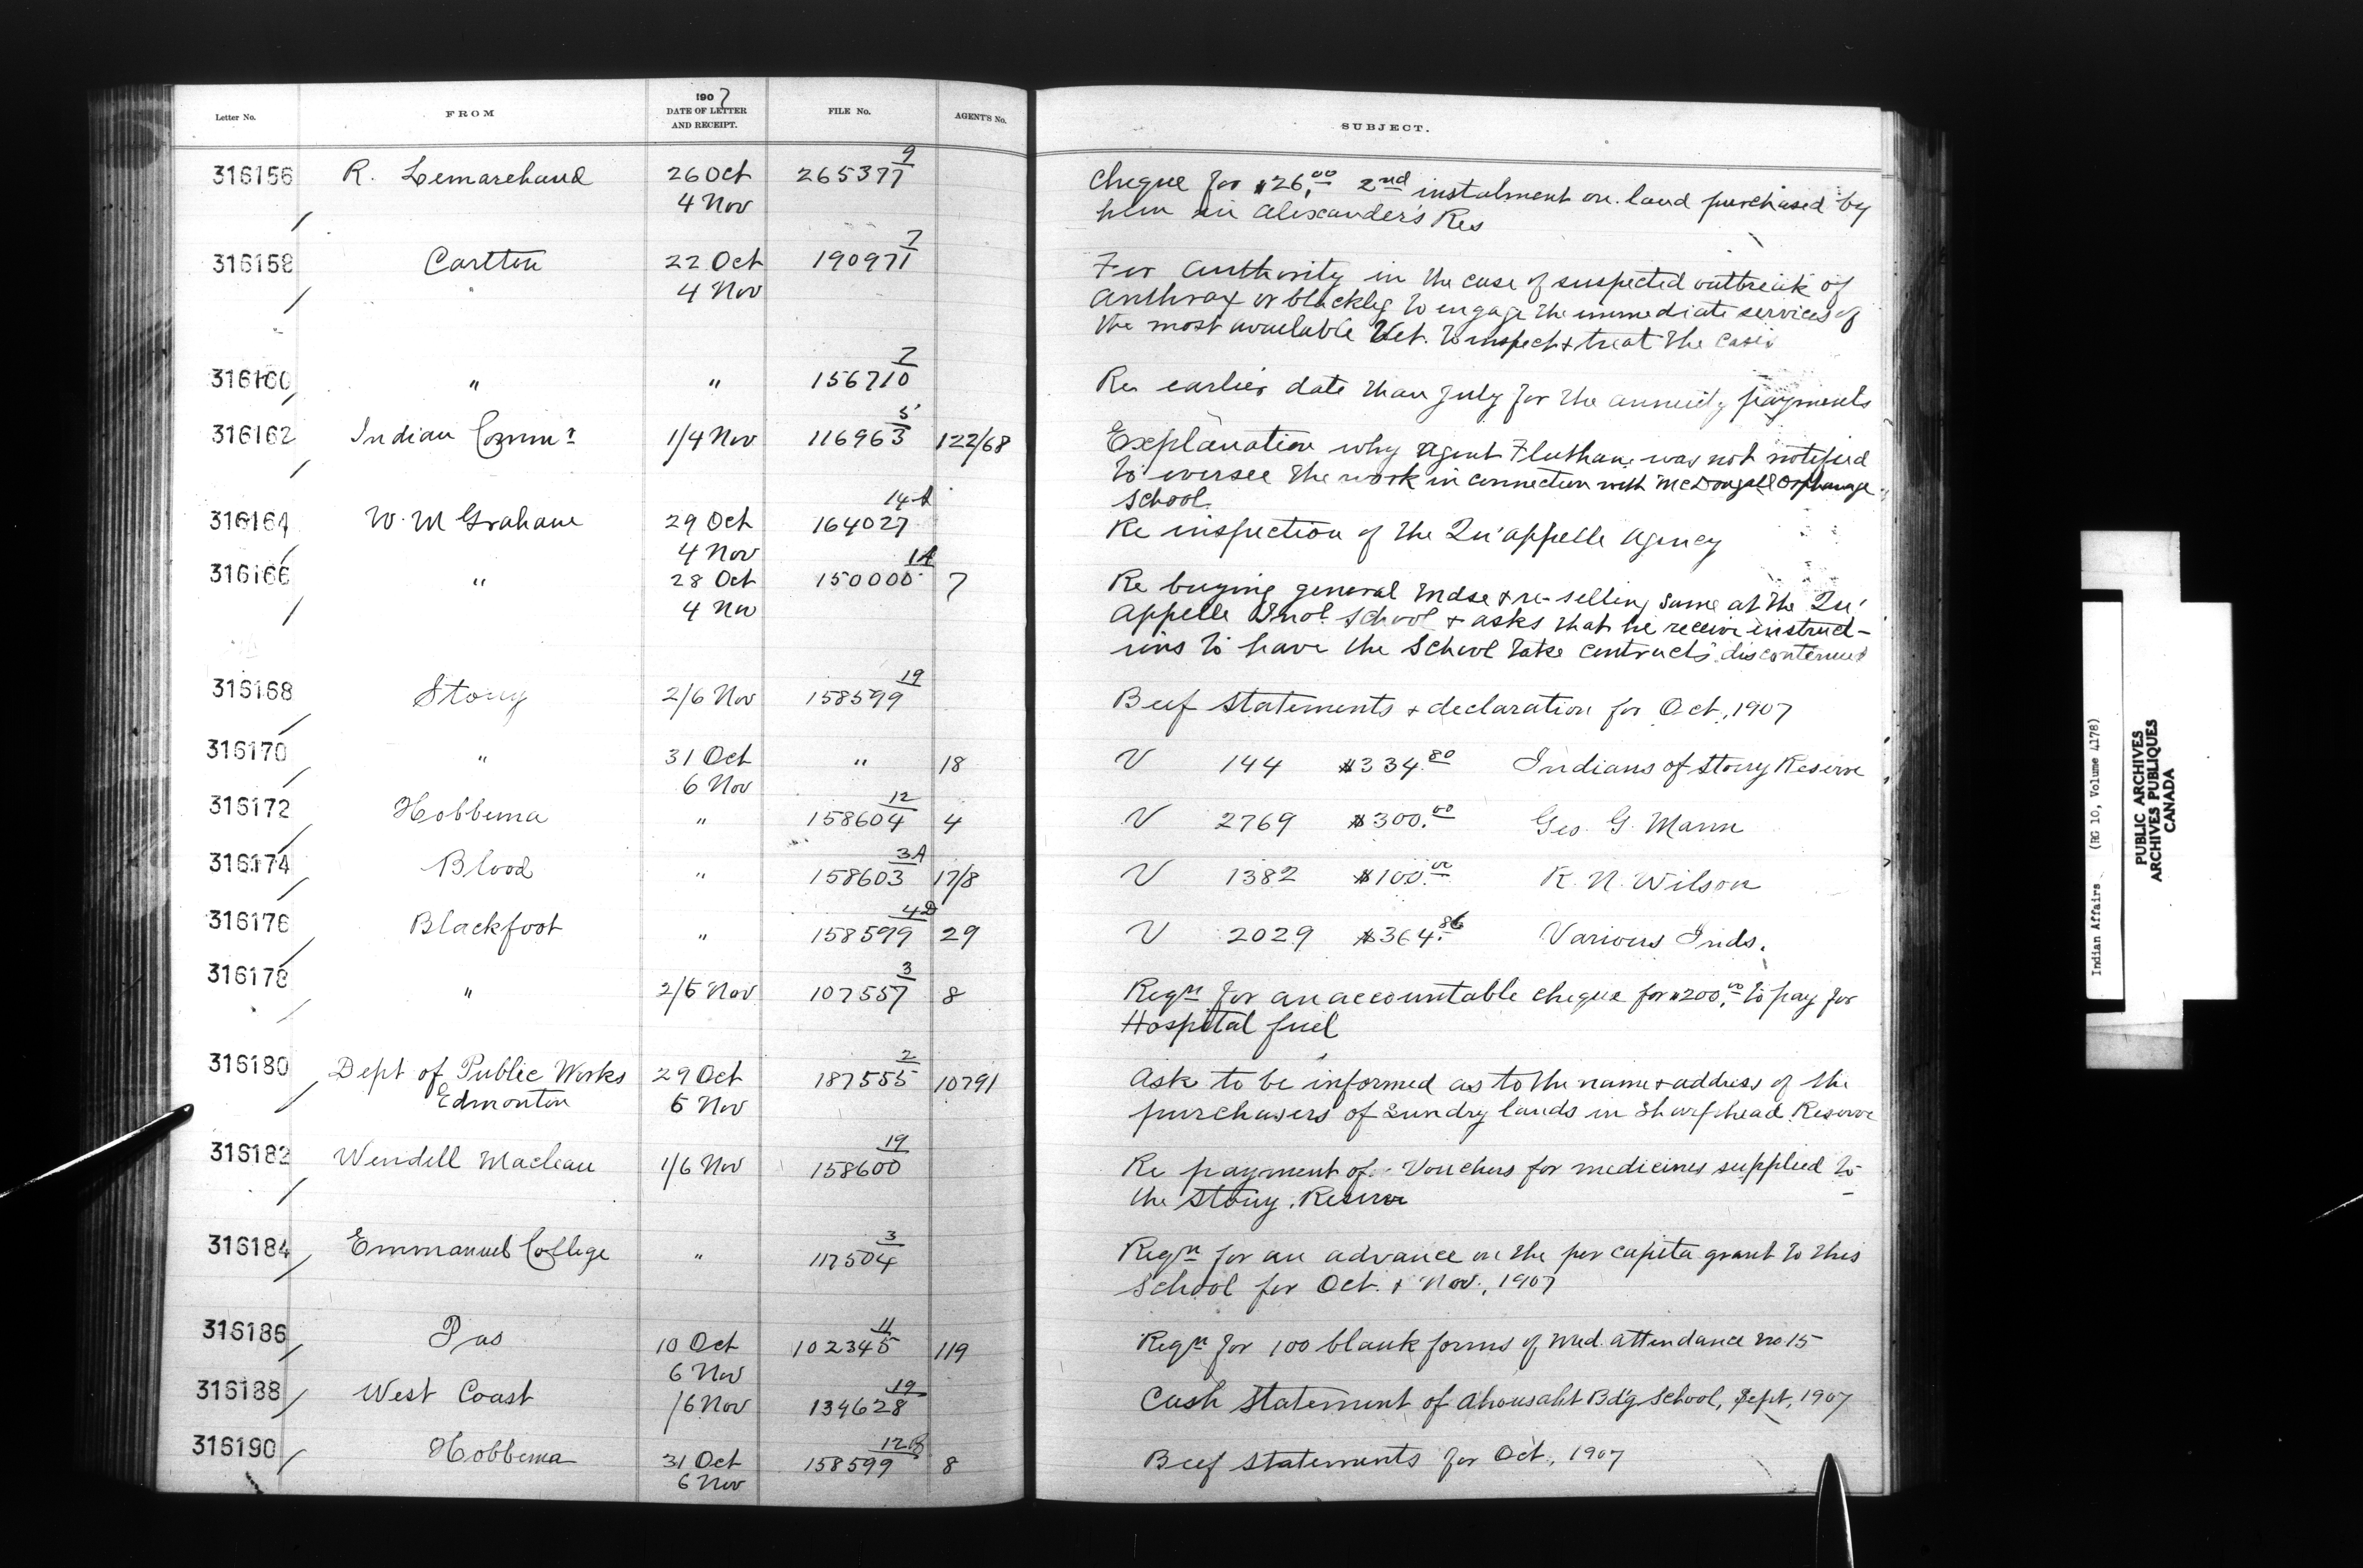 Letter No. FROM 1907 DATE OF LETTER AND RECEIPT. FILE No. AGENT'S No. SUBJECT.
316156 R. Lemarchand 26 Oct 265377 9 Cheque for $26.00 2nd instalment on land purchased by
4 Nov him in Alexander's Res
316158 Carlton 22 Oct 190971 7 For authority in the case of suspected outbreak of
4 Nov anthrax or blackleg to engage the immediate services of
the most available Vet. to inspect & treat the cases
316160 " " 156710 7 Re earlier date than July for the annuity payments
316162 Indian Commr 1/4 Nov 116963 5 122/68 Explanation why agent was not notified
to oversee the work in connection with McDougall Orphanage
School.
316164 W. M Graham 29 Oct 164027 14A Re inspection of the Qu'appelle agency
4 Nov
316166 " 28 Oct 150000 1A 7 Re buying general mdse & re-selling same at the Qu'
4 Nov appelle Indl School & asks that he receive instruct-
ions to have the School take contracts discontinued
316168 Stony 2/6 Nov 158599 19 Beef Statements & declaration for Oct, 1907
316170 " 31 Oct " 18 V 144 $334.80 Indians of Stony Reserve
6 Nov
316172 Hobbema " 158604 12 4 V 2769 $300.00 Geo. G. Mann
316174 Blood " 158603 3A 17/8 V 1382 $100.00 R. N. Wilson
316176 Blackfoot " 158599 4D 29 V 2029 $364.86 Various Inds.
316178 " 2/5 Nov 107557 3 8 Reqn for an accountable cheque for $200.00 to pay for
Hospital fuel
316180 Dept of Public Works 29 Oct 187555 2 10791 Ask to be informed as to the name & address of the
Edmonton 5 Nov purchasers of sundry lands in Sharphead Reserve
316182 Wendell Maclean 1/6 Nov 158600 19 Re payment of Vouchers for medicines supplied to
the Stony Reserve
316184 Emmanuel College " 117504 3 Reqn for an advance on the per capita grant to this
School for Oct. & Nov., 1907
316186 Pas 10 Oct 102345 11 119 Reqn for 100 blank forms of Med. attendance No. 15
6 Nov
316188 West Coast /6 Nov 134628 19 Cash Statement of Ahousaht Bd'g School, Sept, 1907
316190 Hobbema 31 Oct 158599 12B 8 Beef Statements for Oct., 1907
6 Nov
Indian Affairs (RG 10, Volume 4178)
PUBLIC ARCHIVES
ARCHIVES PUBLIQUES
CANADA